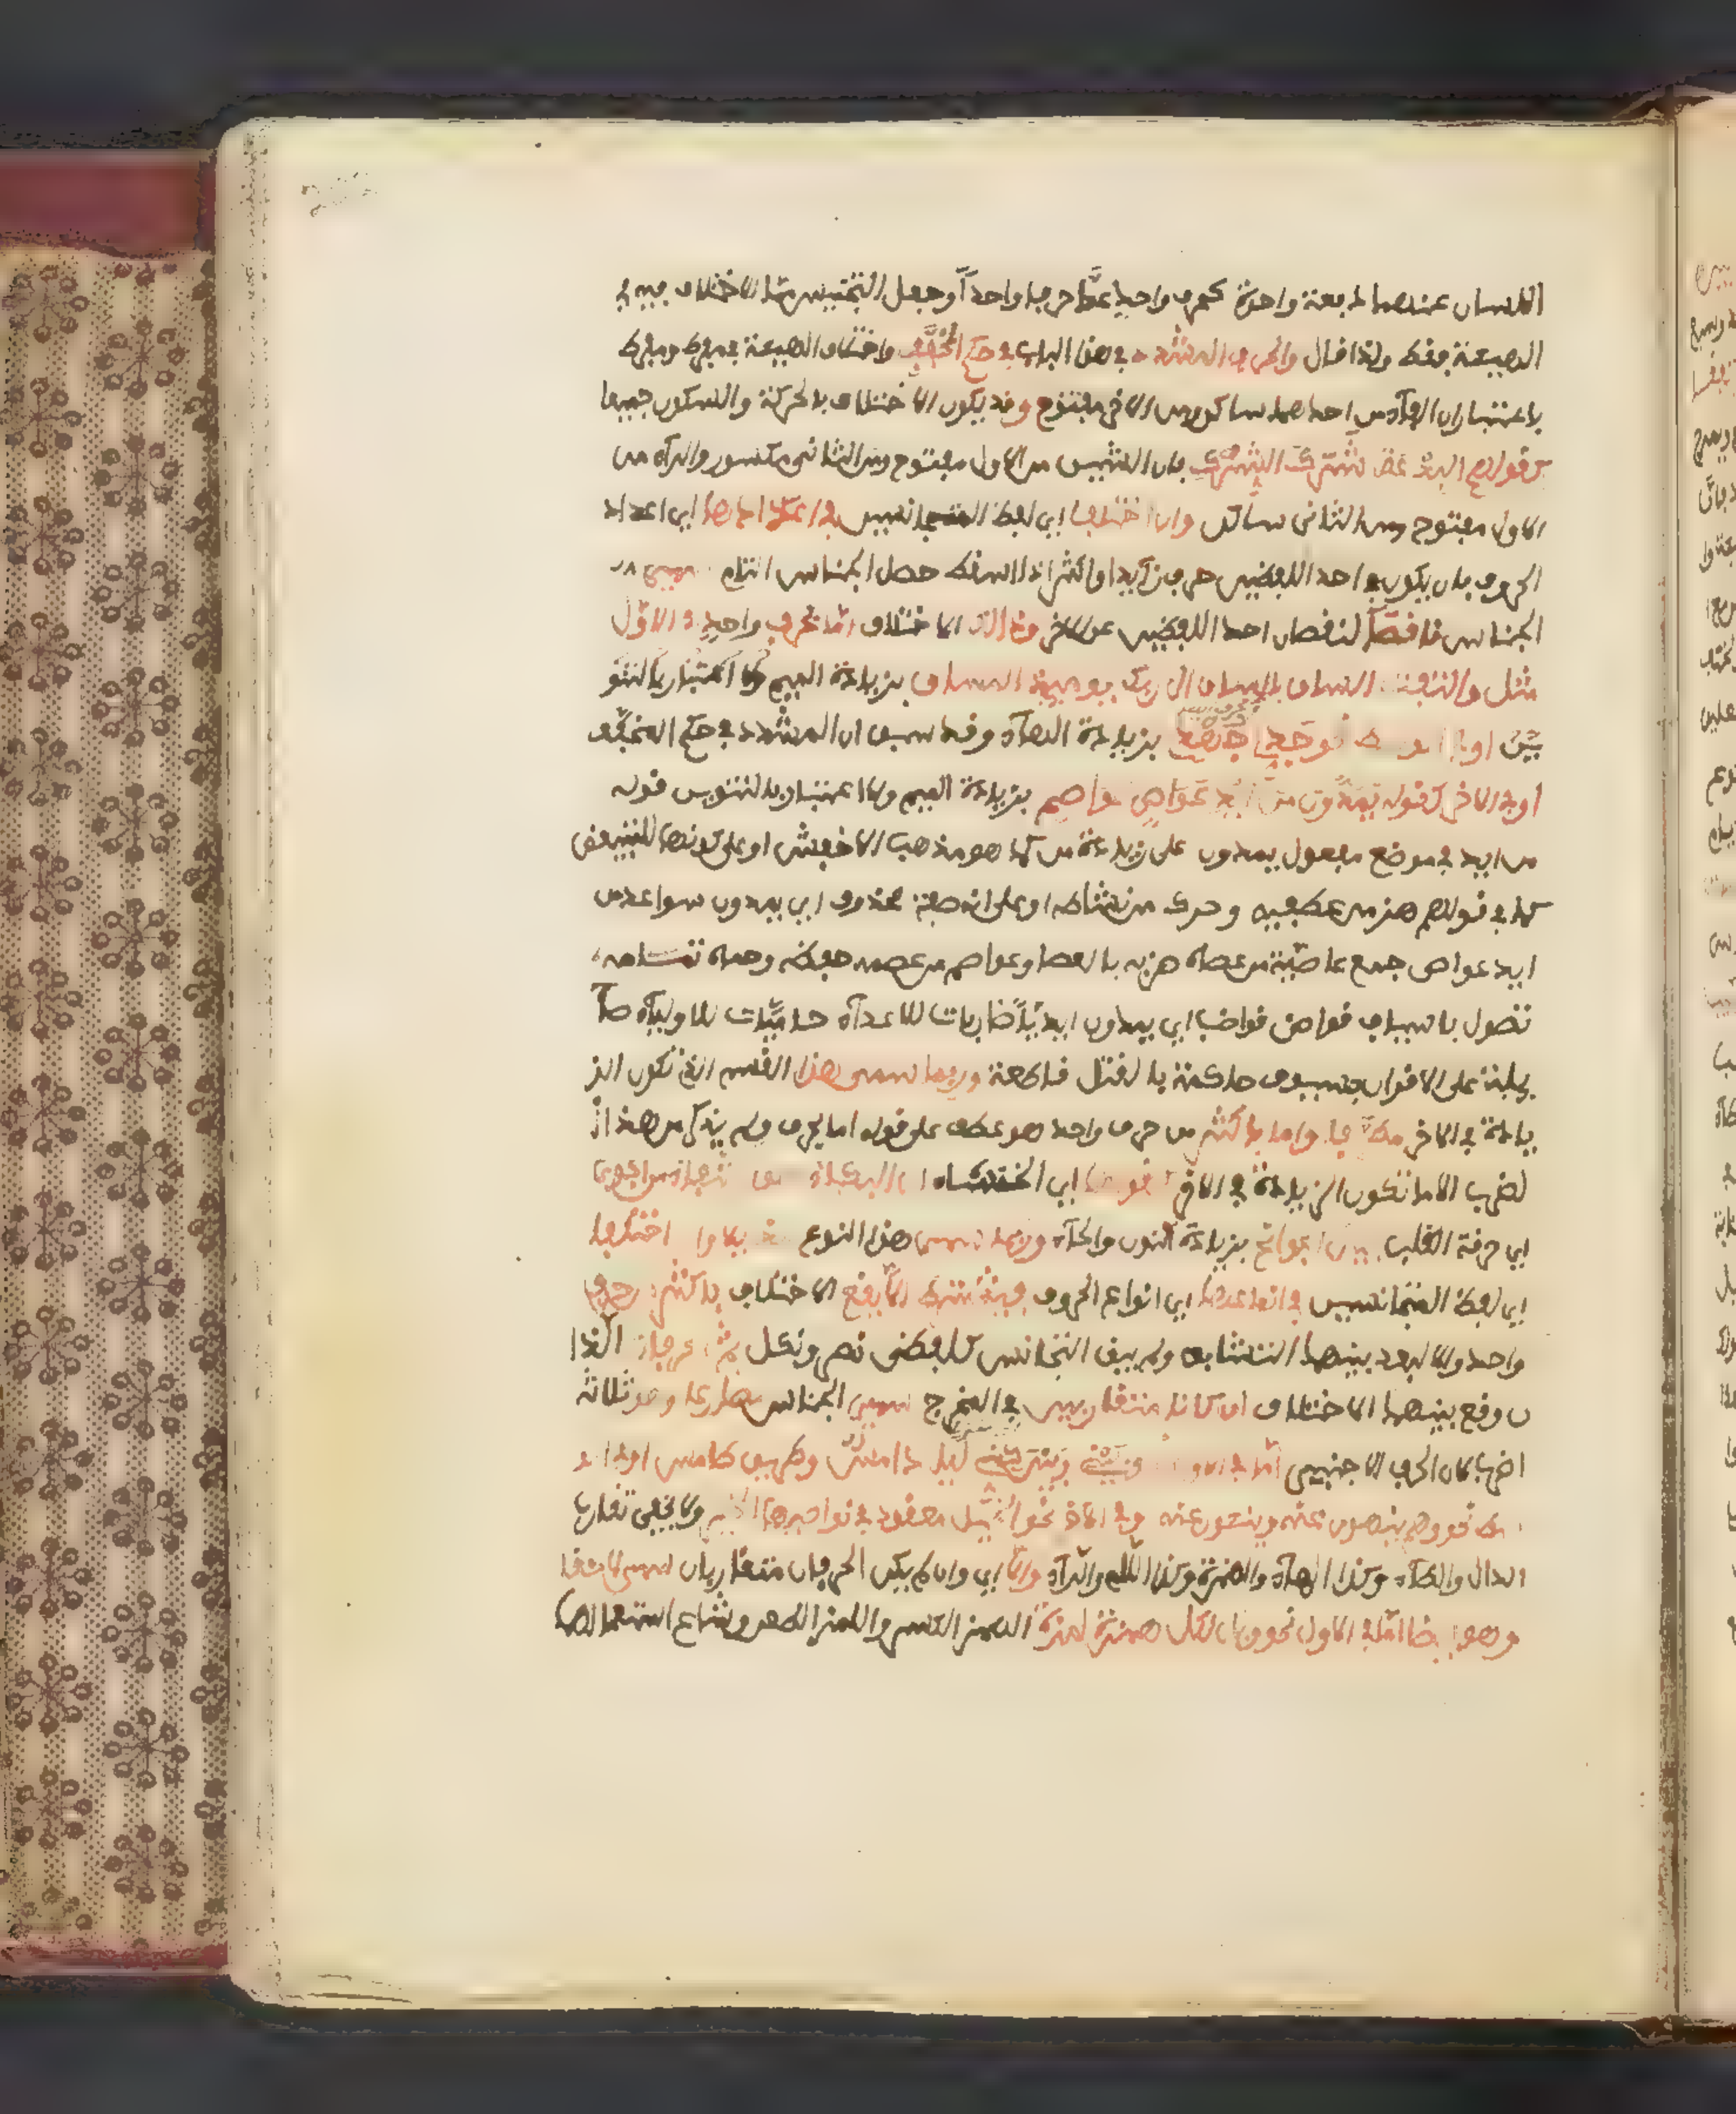 اللسان عنهما دفعة واحدة كحرف واحد عدّا حرفا واحداً وجعل التجنيس مما الاختلاف فيه في
الهيئة فقط ولذا قال والحرف المشدد في هذا الباب في حكم المخفّف واختلاف الهيئة في مفرط ومفرط
باعتبار ان الفآء من احدهما ساكن ومن الاخر مفتوح وقد يكون الاختلاف بالحركة والسكون جميعا
كقولهم البدعة شَرَك الشِّرْك فان الشين من الاول مفتوح ومن الثاني مكسور والرآء من
الاول مفتوح ومن الثاني ساكن وان اختلفا اي لفظا المتجانسين في اعدادها اي اعداد
الحروف بان يكون في احد اللفظين حرف زآيد او اكثر اذا اسقط حصل الجناس التام سمي
الجناس ناقصاً لنقصان احد اللفظين عن الاخر وذلك الاختلاف امّا بحرف واحد في الاوّل
مثل والتفت الساق بالساق الى ربك يومئذ المساق بزيادة الميم ولا اعتبار بالتنو
ين او في الوسط نحو جَدِّي جَهْدِي بزيادة الهآء وقد سبق ان المشدد في حكم المخفّف
او في الاخر كقوله يَمُدُّون من أَيْدٍ عَوَاصٍ عواصم بزيادة الميم ولا اعتبار بالتنوين قوله
من ايد في موضع مفعول يمدون على زيادة من كما هو مذهب الاخفش او على كونها للتبعيض
كما في قولهم هز من عطفيه وحرك من نشاطه او على انه صفة محذوف اي يمدون سواعد من
ايد عواص جمع عاصية من عصاه ضربه بالعصا وعواصم من عصمه حفظه وحماه تمامه
تصول باسياف قواض قواضب اي يمدون ايديًا ضاربات للاعدآء حاميات للاوليآء صآ
يلة على الاقران بسيوف حاكمة بالقتل قاطعة وربما سمي هذا القسم الذي تكون الز
يادة في الاخر مطرّفا واما باكثر من حرف واحد هو عطف على قوله اما بحرف ولم يذكر من هذا ا
لضرب الا ما تكون الزيادة في الاخر كقولها اي الخنساء ان البكاء هو الشفاء من الجوى
اي حرقة القلب بين الجوانح بزيادة النون والحآء وربما سمي هذا النوع مذيلا وان اختلفا
اي لفظا المتجانسين في انواعها اي انواع الحروف فيشترط الاّ يقع الاختلاف باكثر من حرف
واحد والا لبعد بينهما التشابه ولم يبق التجانس كلفظي نصر ونكل ثم الحرفان اللذا
ن وقع بينهما الاختلاف ان كانا متقاربين في المخرج سمي الجناس مضارعا وهو ثلاثة
اضرب لان الحرف الاجنبي امّا في الاول نحو بيني وبين كِنّي ليل دامس وطريق طامس او في الو
سط نحو وهم ينهون عنه وينئون عنه وفي الاخر نحو الخيل معقود في نواصيها الخير ولا يخفى تقارب
الدال والطآء وكذا الهآء والهمزة وكذا اللام والرآء والاّ اي وان لم يكن الحرفان متقاربان سمي لاحقا
وهو ايضا امّا في الاول نحو ويل لكل همزة لمزة الهمز الكسر واللمز الطعن وشاع استعمالهما